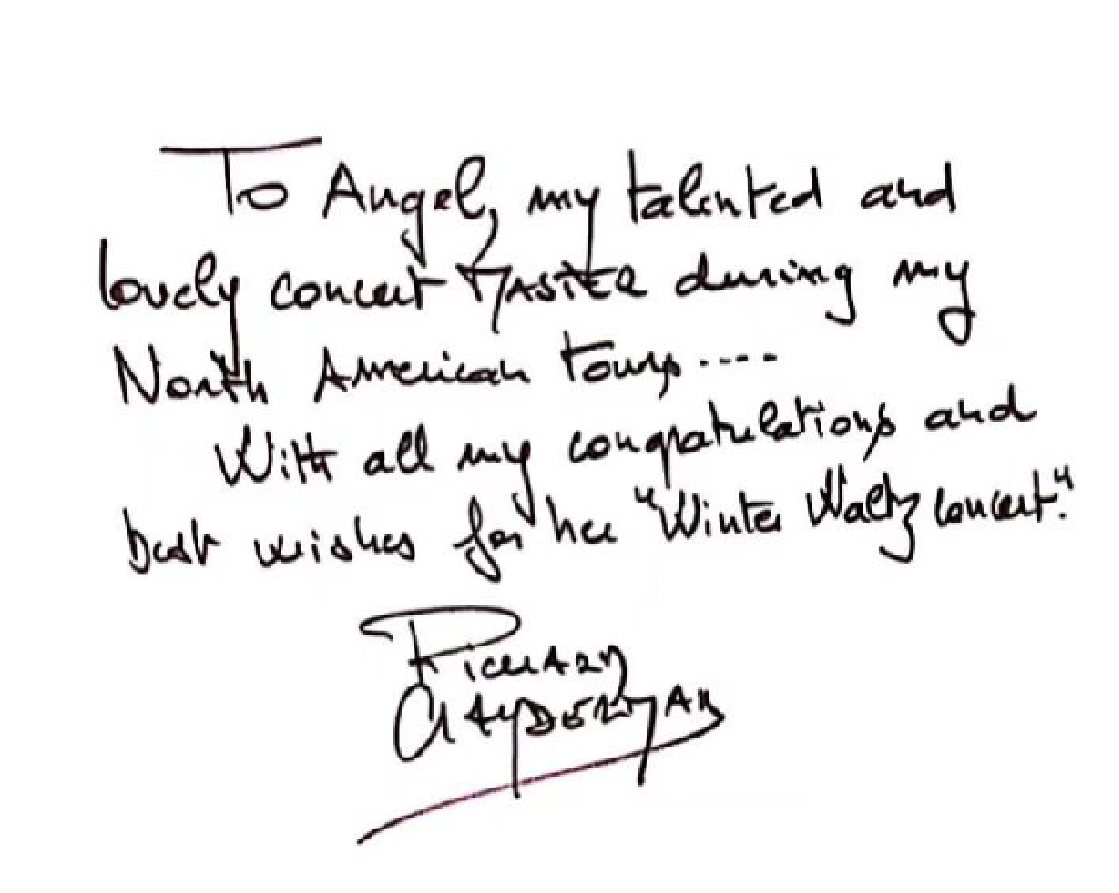 To Angel, my talented and
lovely concert MASTER during my
North American Tours ....
With all my congratulations and
best wishes for her "Winter Waltz concert."
RICHARD
CLAYDERMAN